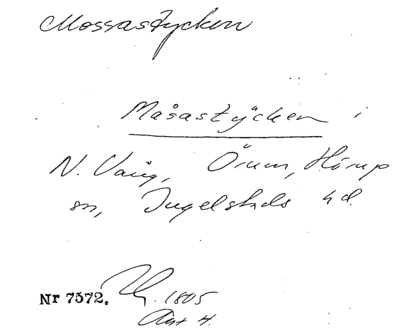 Mossastycken
Måsastycken i
N. Vång, Örum, Hörup
sn, Ingelstads hd.
Nr 7572. 1805
Akt 4.